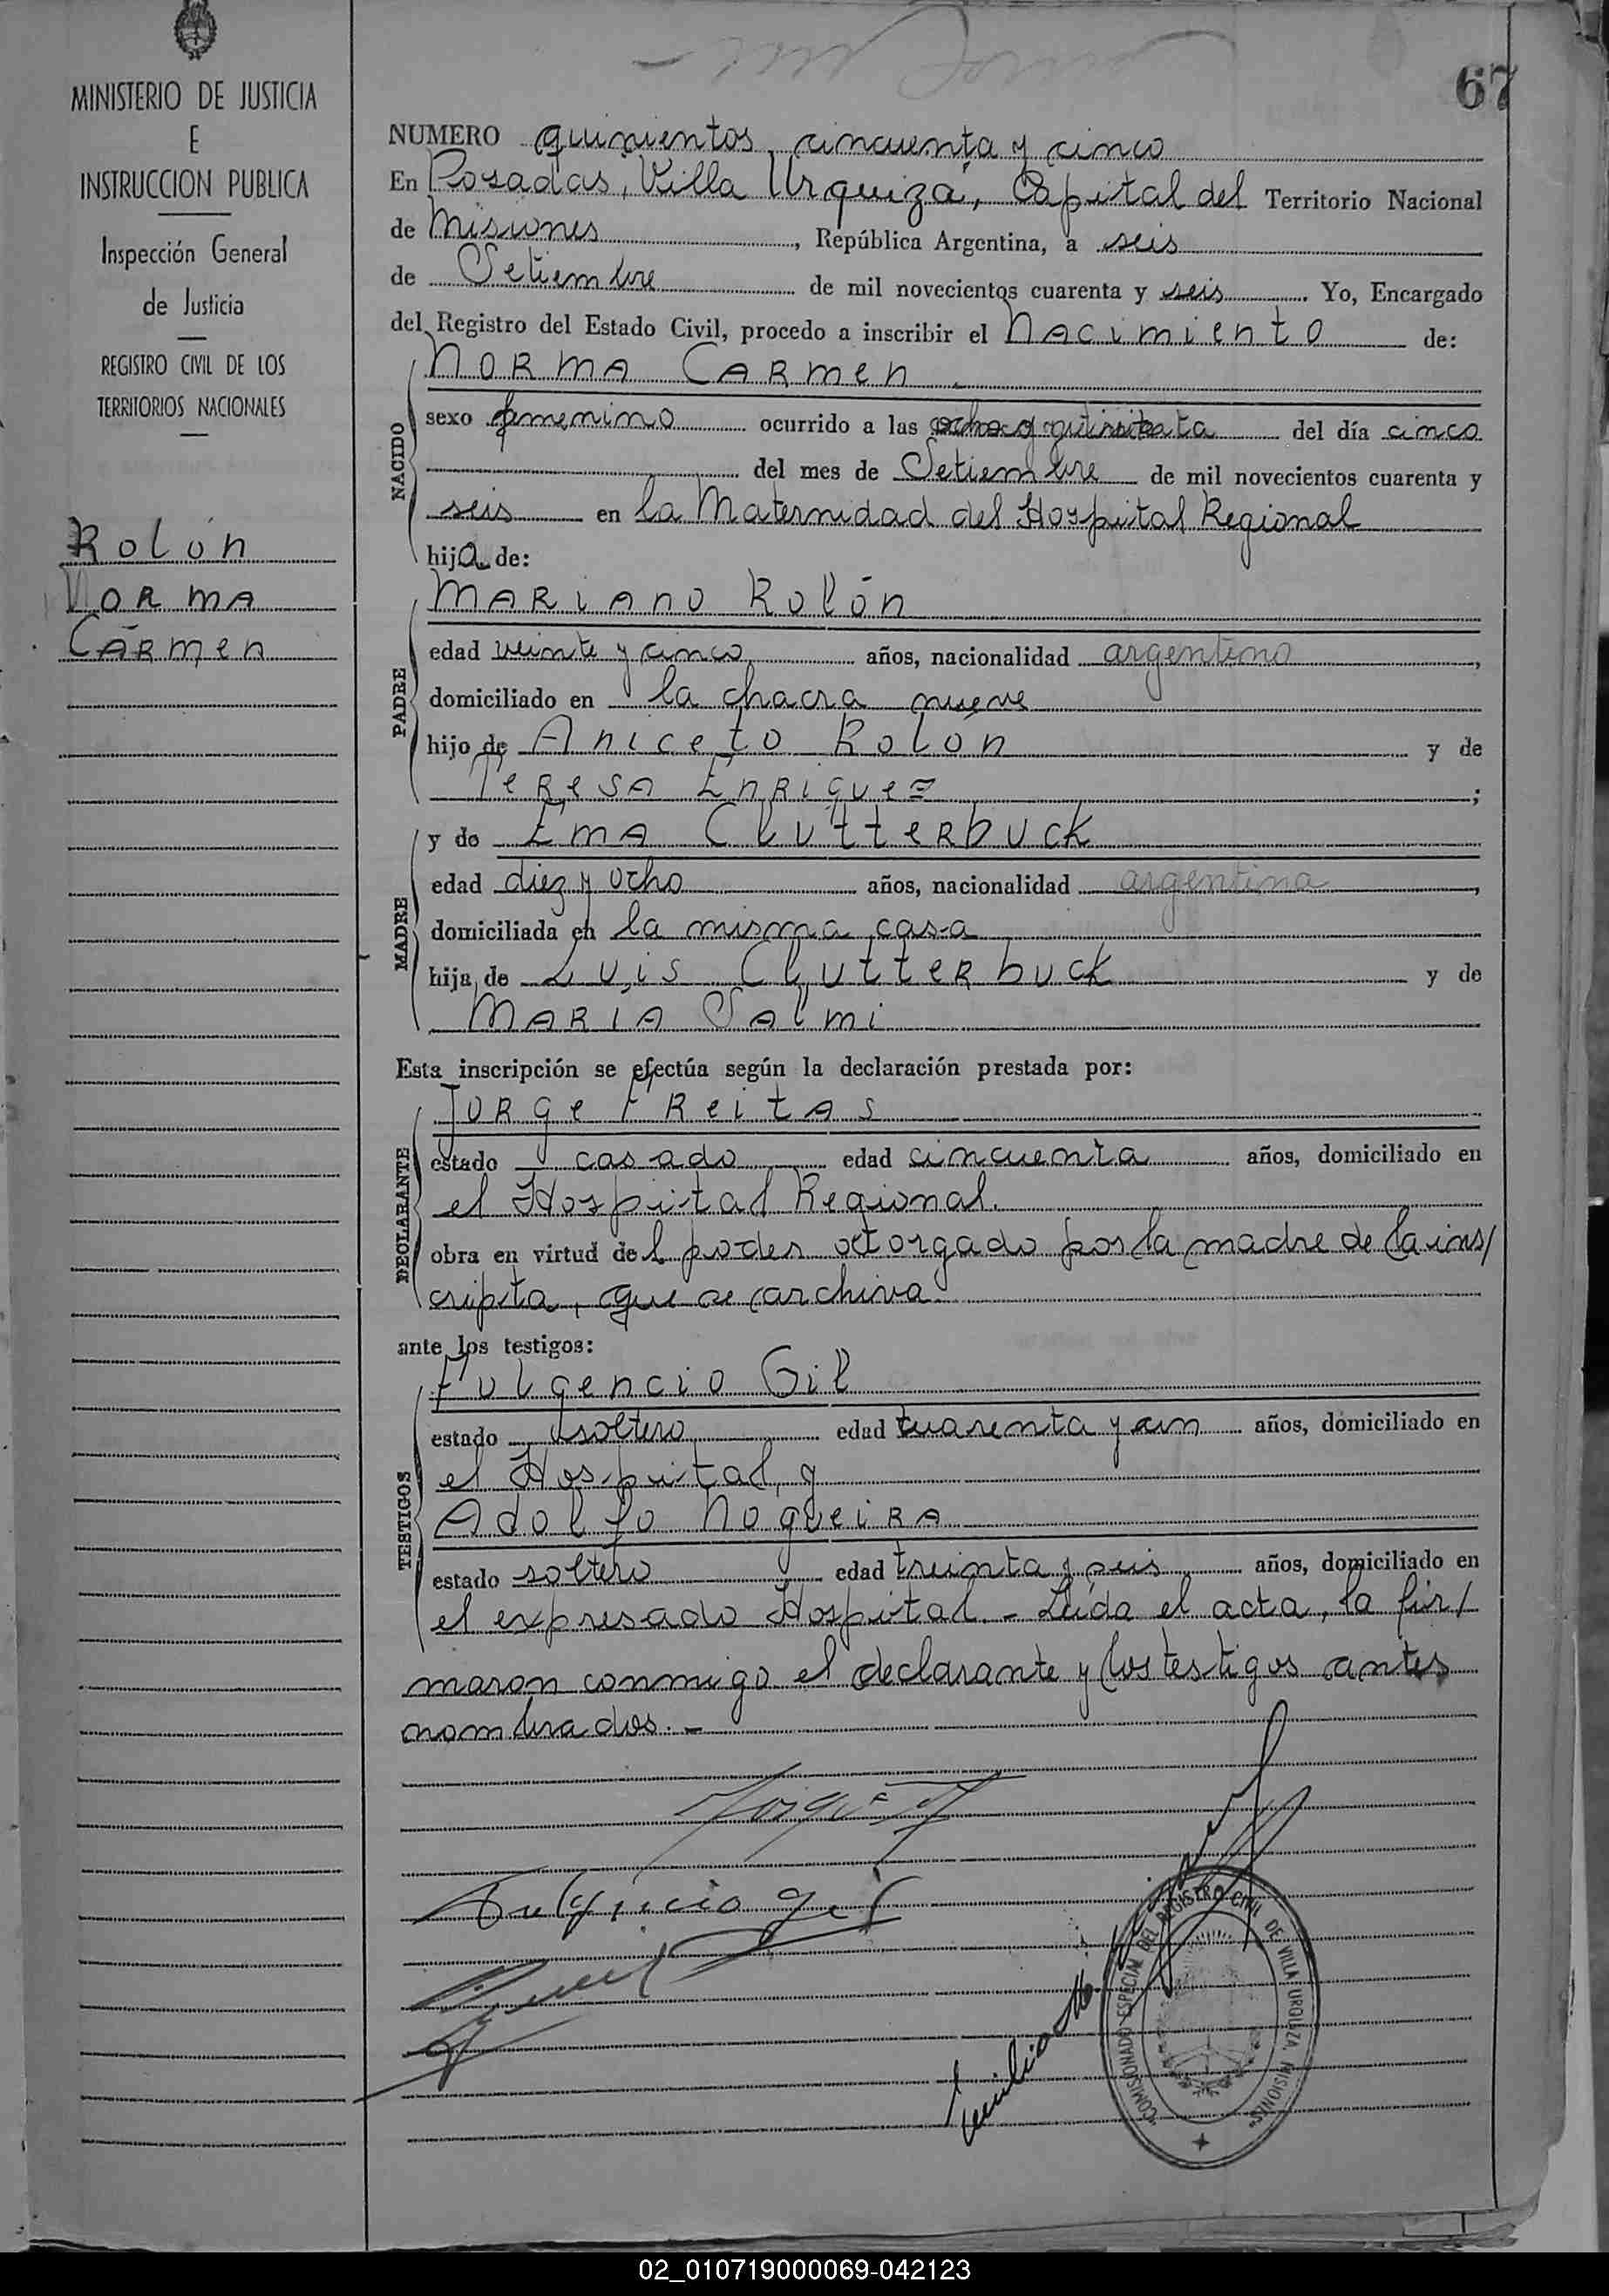 67
MINISTERIO DE JUSTICIA
E
INSTRUCCION PUBLICA
Inspección General
de Justicia
REGISTRO CIVIL DE LOS
TERRITORIOS NACIONALES
Rolón
Norma
Carmen
NUMERO quinientos cincuenta y cinco
En Posadas, Villa Urquiza, Capital del Territorio Nacional
de Misiones, República Argentina, a seis
de Setiembre de mil novecientos cuarenta y seis. Yo, Encargado
del Registro del Estado Civil, procedo a inscribir el nacimiento de:
NACIDO
Norma Carmen
sexo femenino ocurrido a las del día cinco
del mes de Setiembre de mil novecientos cuarenta y
seis en la Maternidad del Hospital Regional
hija de:
PADRE
Mariano Rolón
edad veinte y cinco años, nacionalidad argentino,
domiciliado en la chacra nueve
hijo de Aniceto Rolón y de
Teresa Enriquez;
MADRE
y de Ema Clutterbuck
edad diez y ocho años, nacionalidad argentina,
domiciliada en la misma casa
hija de Luis Clutterbuck y de
María Salmi
Esta inscripción se efectúa según la declaración prestada por:
DECLARANTE
Jorge Freitas
estado casado edad cincuenta años, domiciliado en
el Hospital Regional.
obra en virtud del poder otorgado por la madre de la ins/
cripta, que se archiva.
ante los testigos:
TESTIGOS
Fulgencio Gil
estado soltero edad cuarenta y un años, domiciliado en
el Hospital y
Adolfo Nogueira
estado soltero edad treinta y seis años, domiciliado en
el expresado Hospital. - Leída el acta, la fir/
maron conmigo el declarante y los testigos antes
nombrados. -
Fulgencio Gil
Emilia
COMISIONADO ESPECIAL DEL REGISTRO CIVIL DE VILLA URQUIZA, MISIONES
02_010719000069-042123